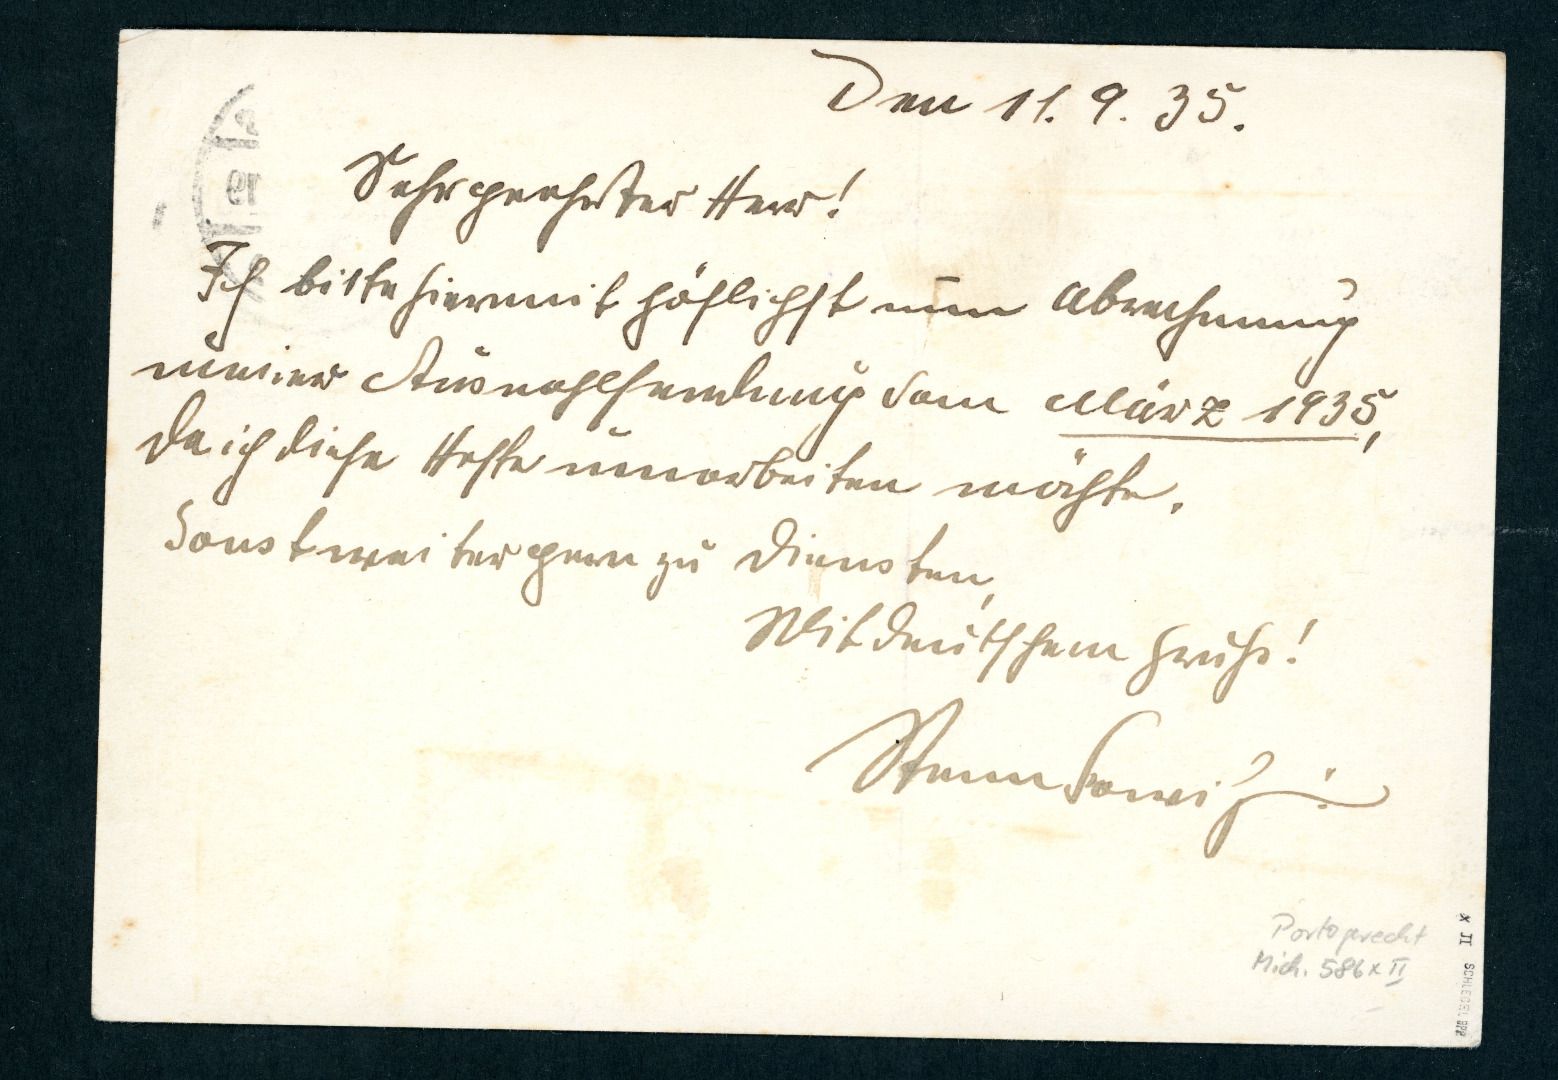 Den 11. 9. 35.
Sehr geehrter Herr!
Ich bitte hiermit höflichst um Abrechnung
meiner Auswahlsendung vom März 1935,
da ich diese Hefte umarbeiten möchte.
Sonst weiter gern zu Diensten,
Mit deutschem Gruße!
Portogerecht
Mich. 586 x II
x II SCHLEGEL BPP